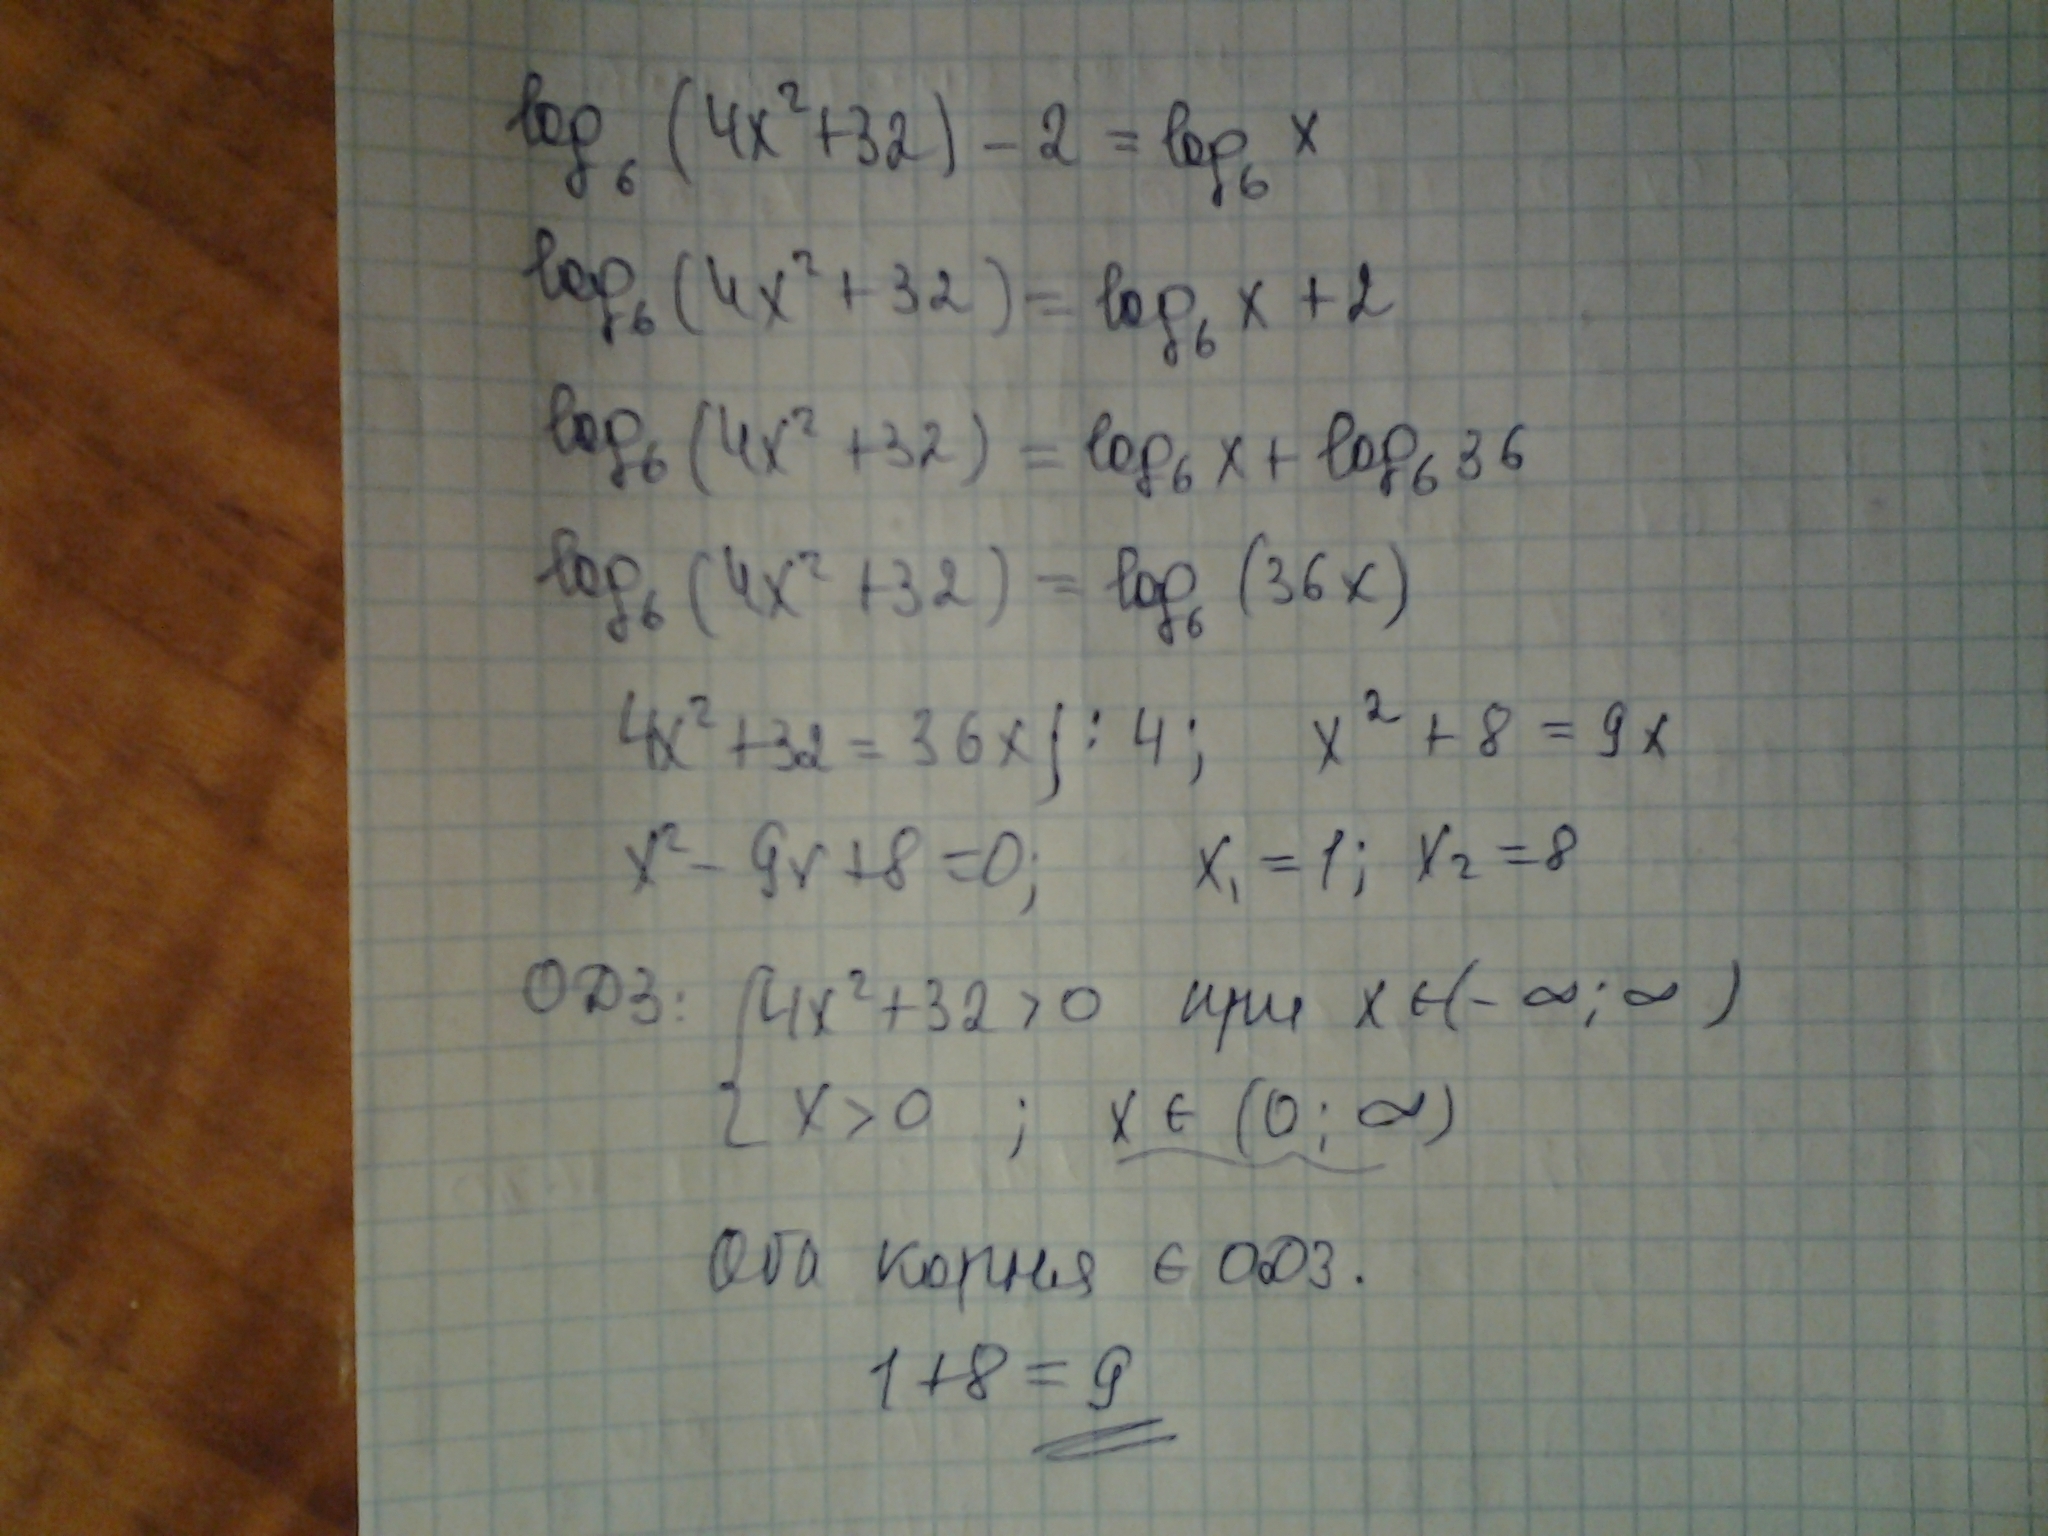 log₆ (4x²+32) - 2 = log₆ x
log₆ (4x²+32) = log₆ x + 2
log₆ (4x²+32) = log₆ x + log₆ 36
log₆ (4x²+32) = log₆ (36x)
4x²+32 = 36x | : 4; x² + 8 = 9x
x² - 9x + 8 = 0; x₁ = 1; x₂ = 8
ОДЗ: { 4x²+32 > 0 при x ∈ (-∞; ∞)
x > 0 ; x ∈ (0; ∞)
Оба корня ∈ ОДЗ.
1+8 = 9